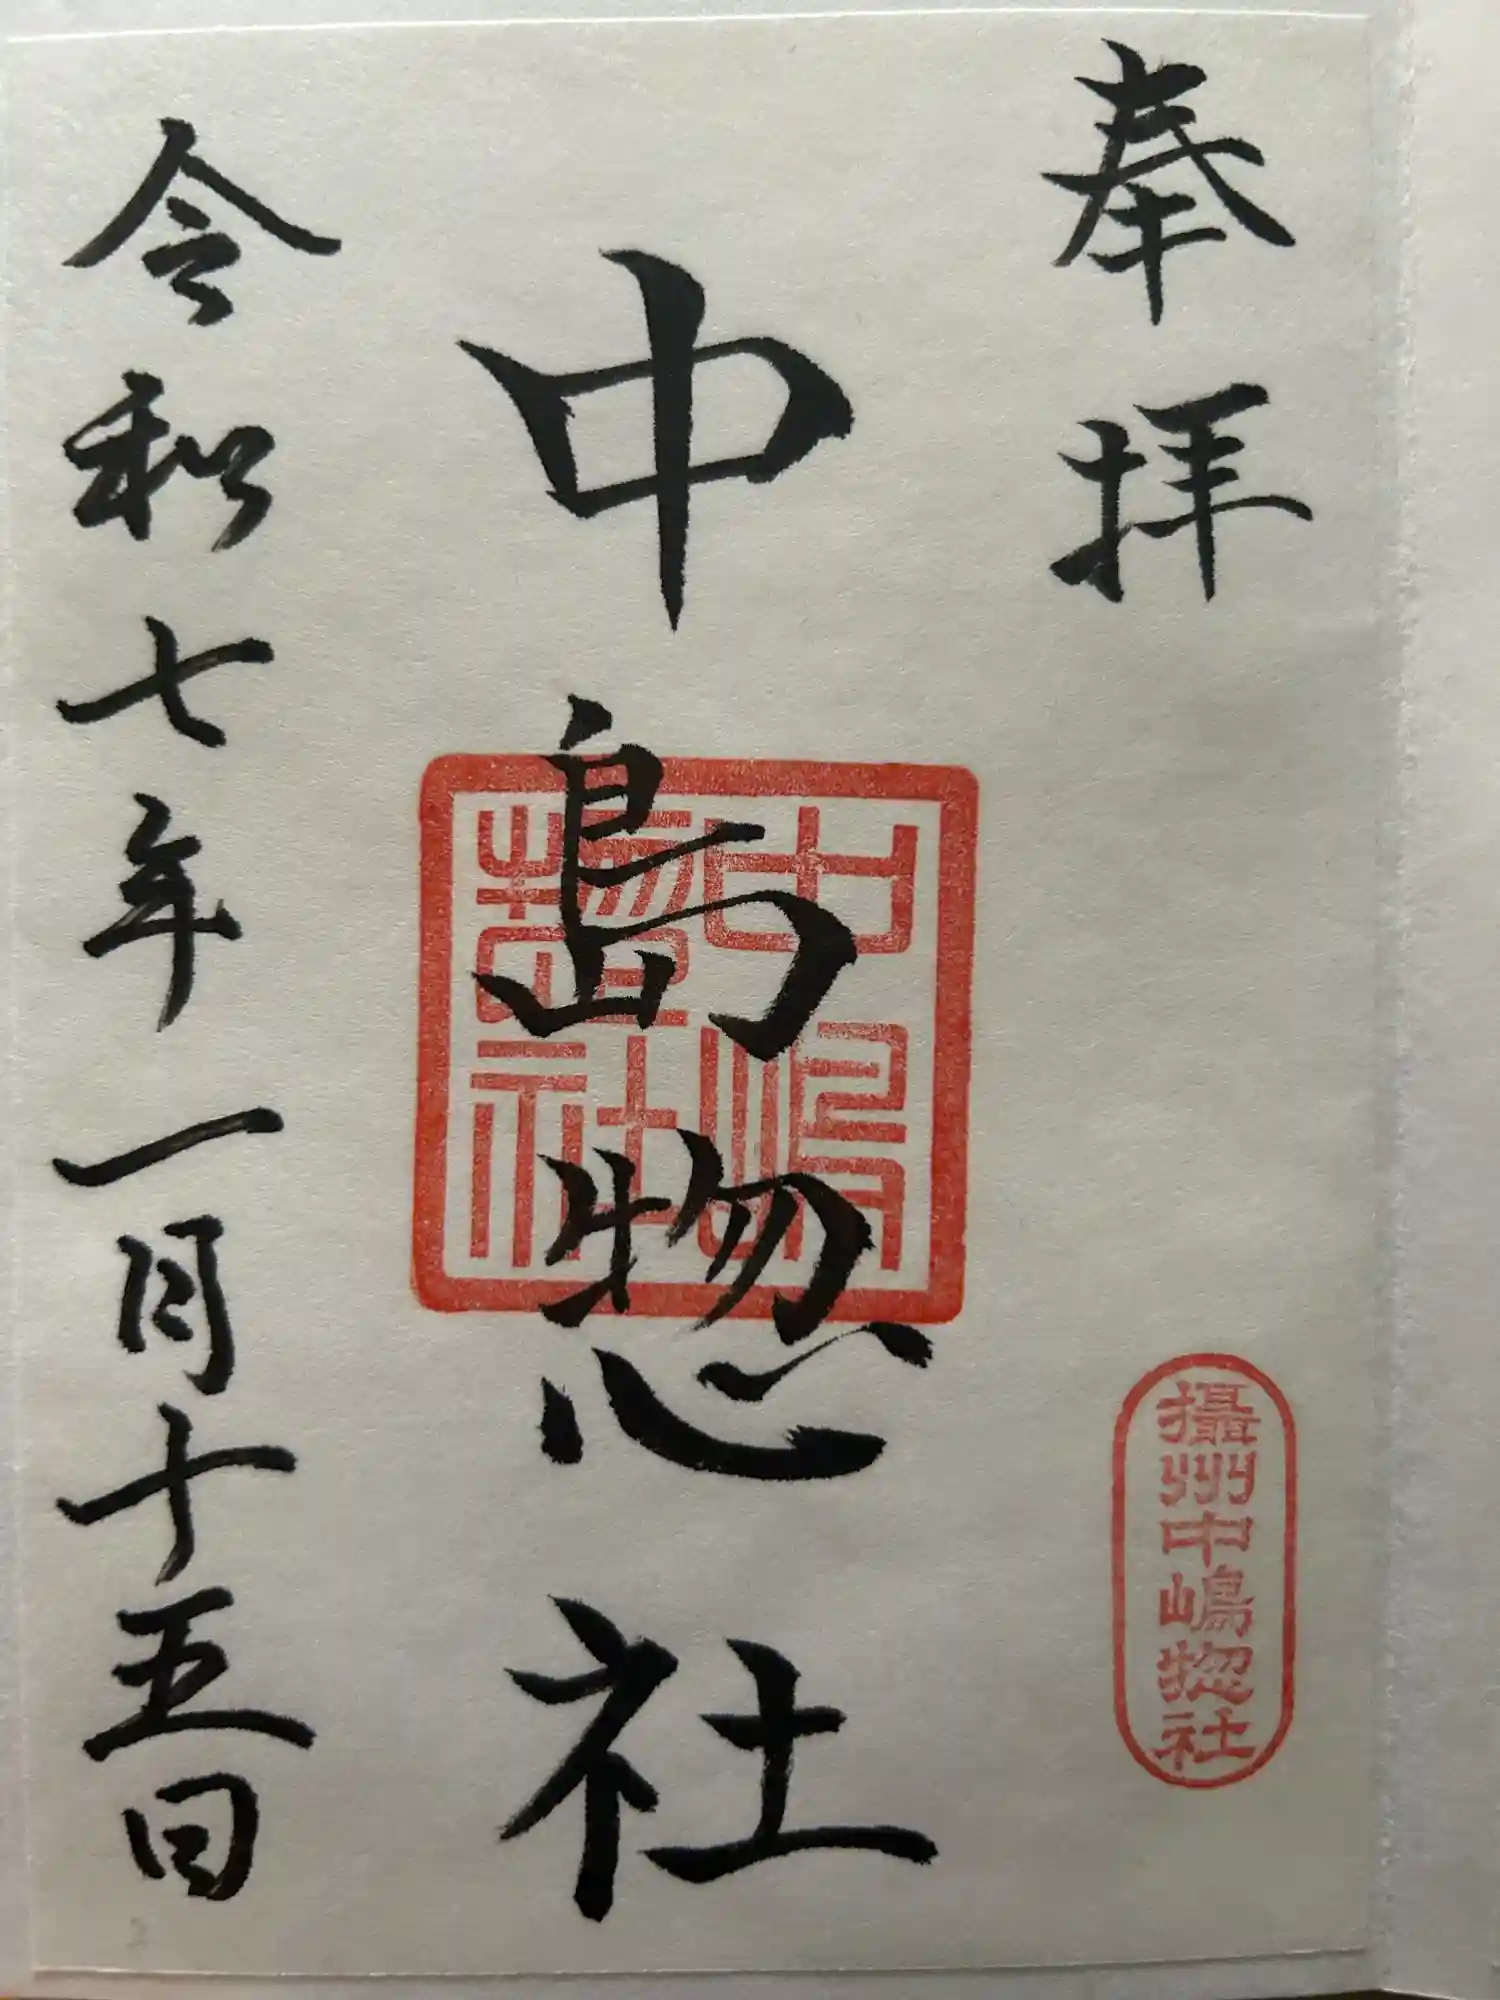 奉拝
攝州中嶋惣社
中島惣社
中嶋惣社
令和七年一月十五日